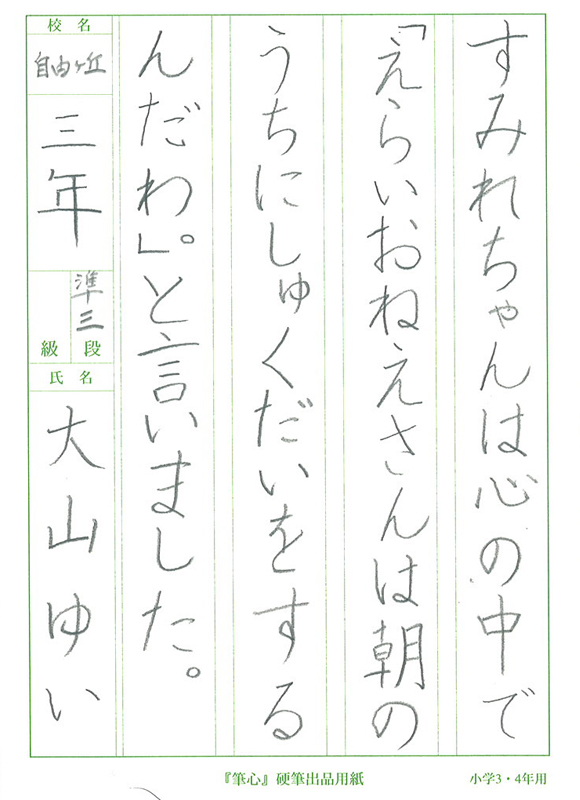 すみれちゃんは心の中で
「えらいおねえさんは朝の
うちにしゅくだいをする
んだわ」。と言いました。
校名
自由ヶ丘
三年
準三
級 段
氏名
大山ゆい
『筆心』硬筆出品用紙
小学3・4年用